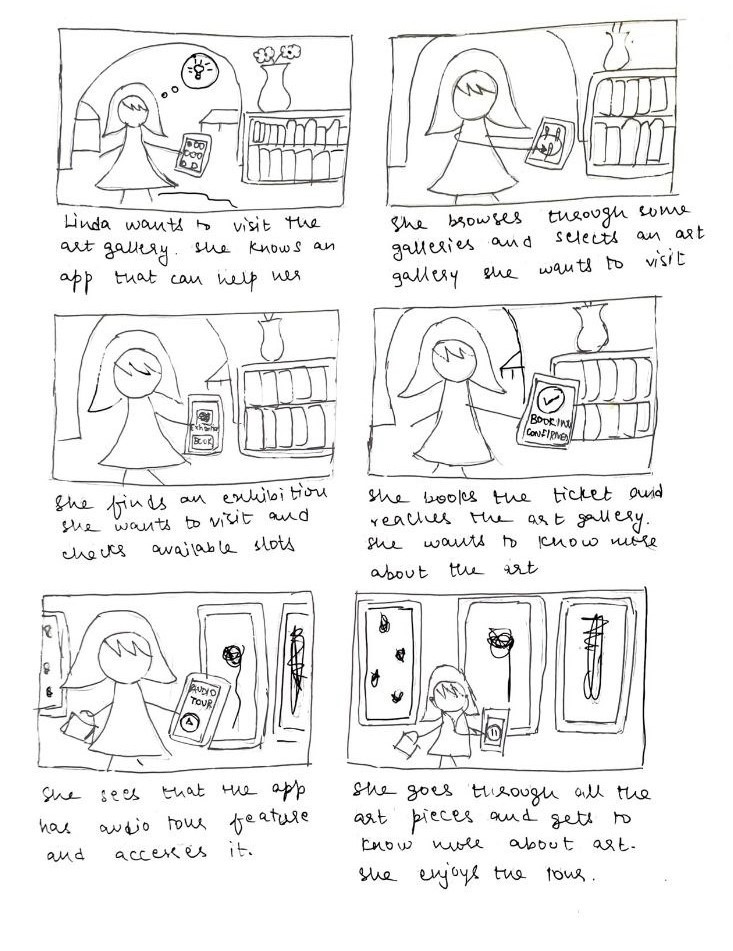 Linda wants to visit the
art gallery. She knows an
app that can help her
She browses through some
galleries and selects an art
gallery she wants to visit
Exhibition
BOOK
She finds an exhibition
she wants to visit and
checks available slots
BOOKING
CONFIRMED
She books the ticket and
reaches the art gallery.
She wants to know more
about the art
AUDIO
TOUR
She sees that the app
has audio tour feature
and accesses it.
She goes through all the
art pieces and gets to
know more about art.
She enjoys the tour.